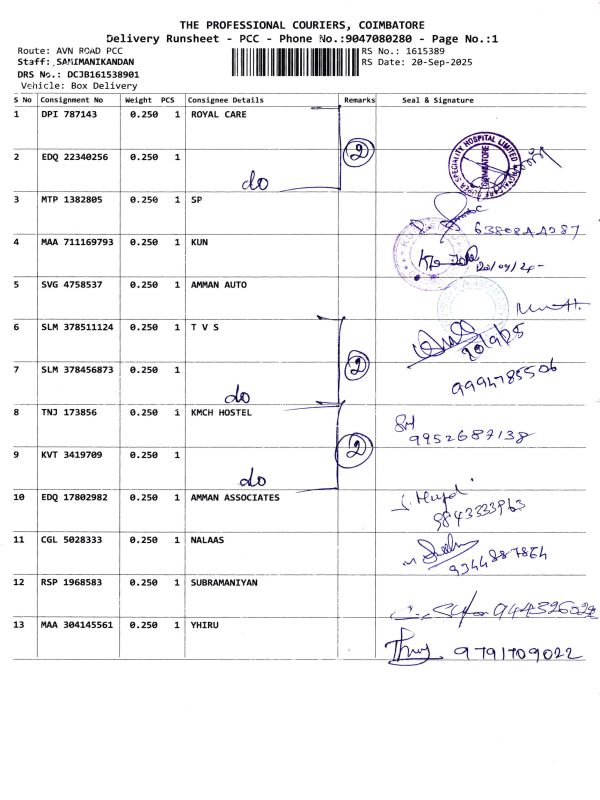 THE PROFESSIONAL COURIERS, COIMBATORE
Delivery Runsheet - PCC - Phone No.:9047080280 - Page No.:1
Route: AVN ROAD PCC
RS No.: 1615389
Staff: SAMIMANIKANDAN
RS Date: 20-Sep-2025
DRS No.: DCJB161538901
Vehicle: Box Delivery
S No Consignment No Weight PCS Consignee Details Remarks Seal & Signature
1 DPI 787143 0.250 1 ROYAL CARE
2
2 EDQ 22340256 0.250 1
do
SUPER SPECIALITY HOSPITAL LIMITED
COIMBATORE
3 MTP 1382805 0.250 1 SP
4 MAA 711169793 0.250 1 KUN
5 SVG 4758537 0.250 1 AMMAN AUTO
6 SLM 378511124 0.250 1 T V S
20/9/25
7 SLM 378456873 0.250 1
2
do
9994785506
8 TNJ 173856 0.250 1 KMCH HOSTEL
9952687138
9 KVT 3419709 0.250 1
2
do
10 EDQ 17802982 0.250 1 AMMAN ASSOCIATES
9843333963
11 CGL 5028333 0.250 1 NALAAS
9344887864
12 RSP 1968583 0.250 1 SUBRAMANIYAN
13 MAA 304145561 0.250 1 YHIRU
9791709022